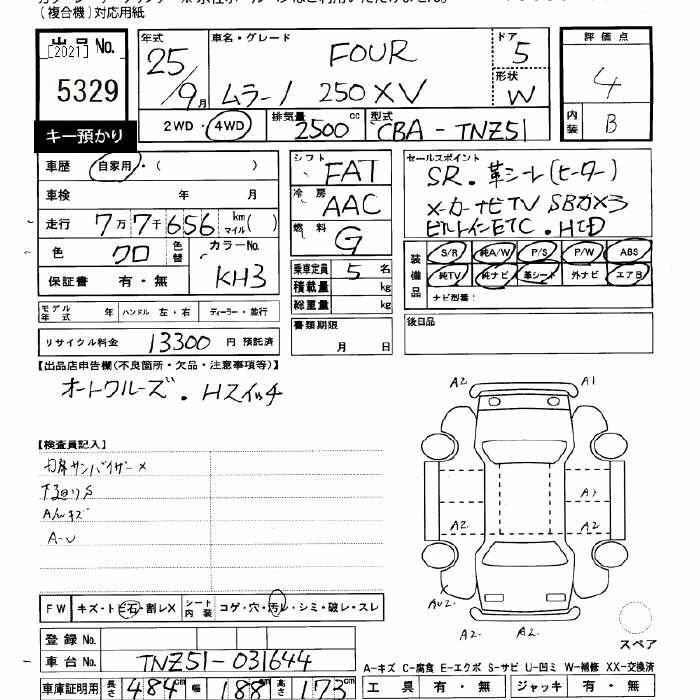 (複合機)対応用紙
出品 No.
[2021]
5329
キー預かり
年式
25/9月
車名・グレード
FOUR
ムラーノ 250XV
ドア
5
形状
W
評価点
4
内装
B
2WD・4WD
排気量
2500 cc
型式
CBA-TNZ51
車歴 自家用・( )
車検 年 月
走行 7万7千656 km マイル( )
色 クロ 色替
カラーNo.
KH3
保証書 有・無
シフト FAT
冷房 AAC
燃料 G
乗車定員 5 名
積載量 kg
総重量 kg
セールスポイント
SR.革シート(ヒーター)
メーカーナビTV SBカメラ
ビルトインETC.HID
装備品 S/R 純A/W P/S P/W ABS
純TV 純ナビ 革シート 外ナビ エアB
ナビ型番:
モデル年式 年 ハンドル 左・右 ディーラー・並行
リサイクル料金 13300 円 預託済
書類期限
月 日
後日品
【出品店申告欄(不良箇所・欠品・注意事項等)】
オートクルーズ.Hスイッチ
【検査員記入】
内席サンバイザーメ
下回りS
A/wキズ
A-U
A2 A1
A2 A1
A2. A2
AU2. A2. A2.
スペア
FW キズ・トビ石・割レX シート内装 コゲ・穴・汚レ・シミ・破レ・スレ
登録 No.
車台 No. TNZ51-031644
車庫証明用 長さ 484cm 幅 188cm 高さ 173cm
A-キズ C-腐食 E-エクボ S-サビ U-凹ミ W-補修 XX-交換済
工具 有・無 ジャッキ 有・無